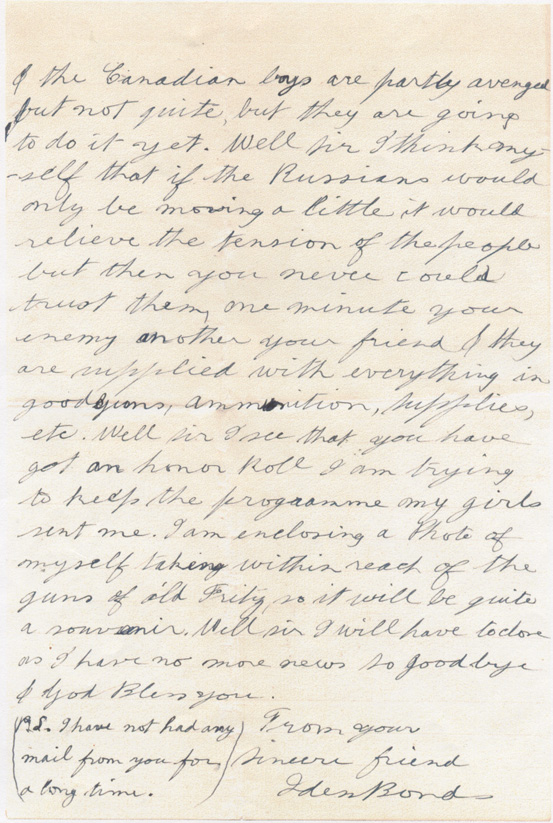 & the Canadian boys are partly avenged
but not quite, but they are going
to do it yet. Well sir I think my-
-self that if the Russians would
only be moving a little it would
relieve the tension of the people
but then you never could
trust them, one minute your
enemy another your friend & they
are supplied with everything in
good guns, ammunition, supplies,
etc. Well sir I see that you have
got an honor Roll I am trying
to keep the progaamme my girls
sent me. I am enclosing a Photo of
myself taking within reach of the
guns of old Fritz, so it will be quite
a souvenir. Well sir I will have to close
as I have no more news so goodbye
& God Bless you.
(P.S. I have not had any
mail from you for
a long time.)
From your
sincere friend
Iden Bonds